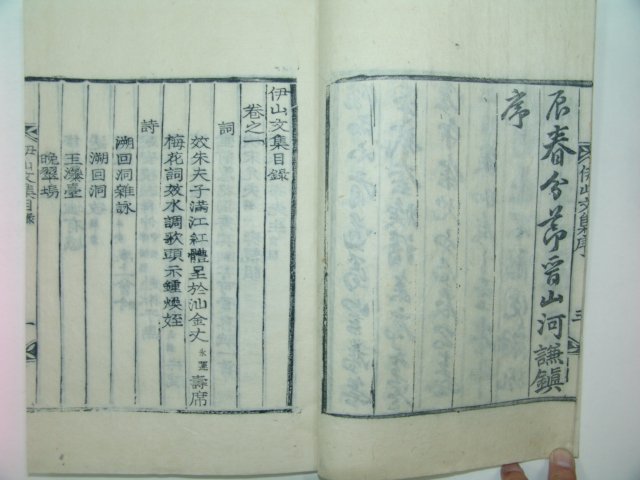 辰春分節晉山河謙鎭
序
伊山文集序
三
伊山文集目錄
卷之一
詞
效朱夫子滿江紅體呈於汕金丈
壽席
梅花詞效水調歌頭示鍾煥姪
詩
溯回洞雜詠
溯回洞
玉瀑臺
晩翠塢
伊山文集目錄
一